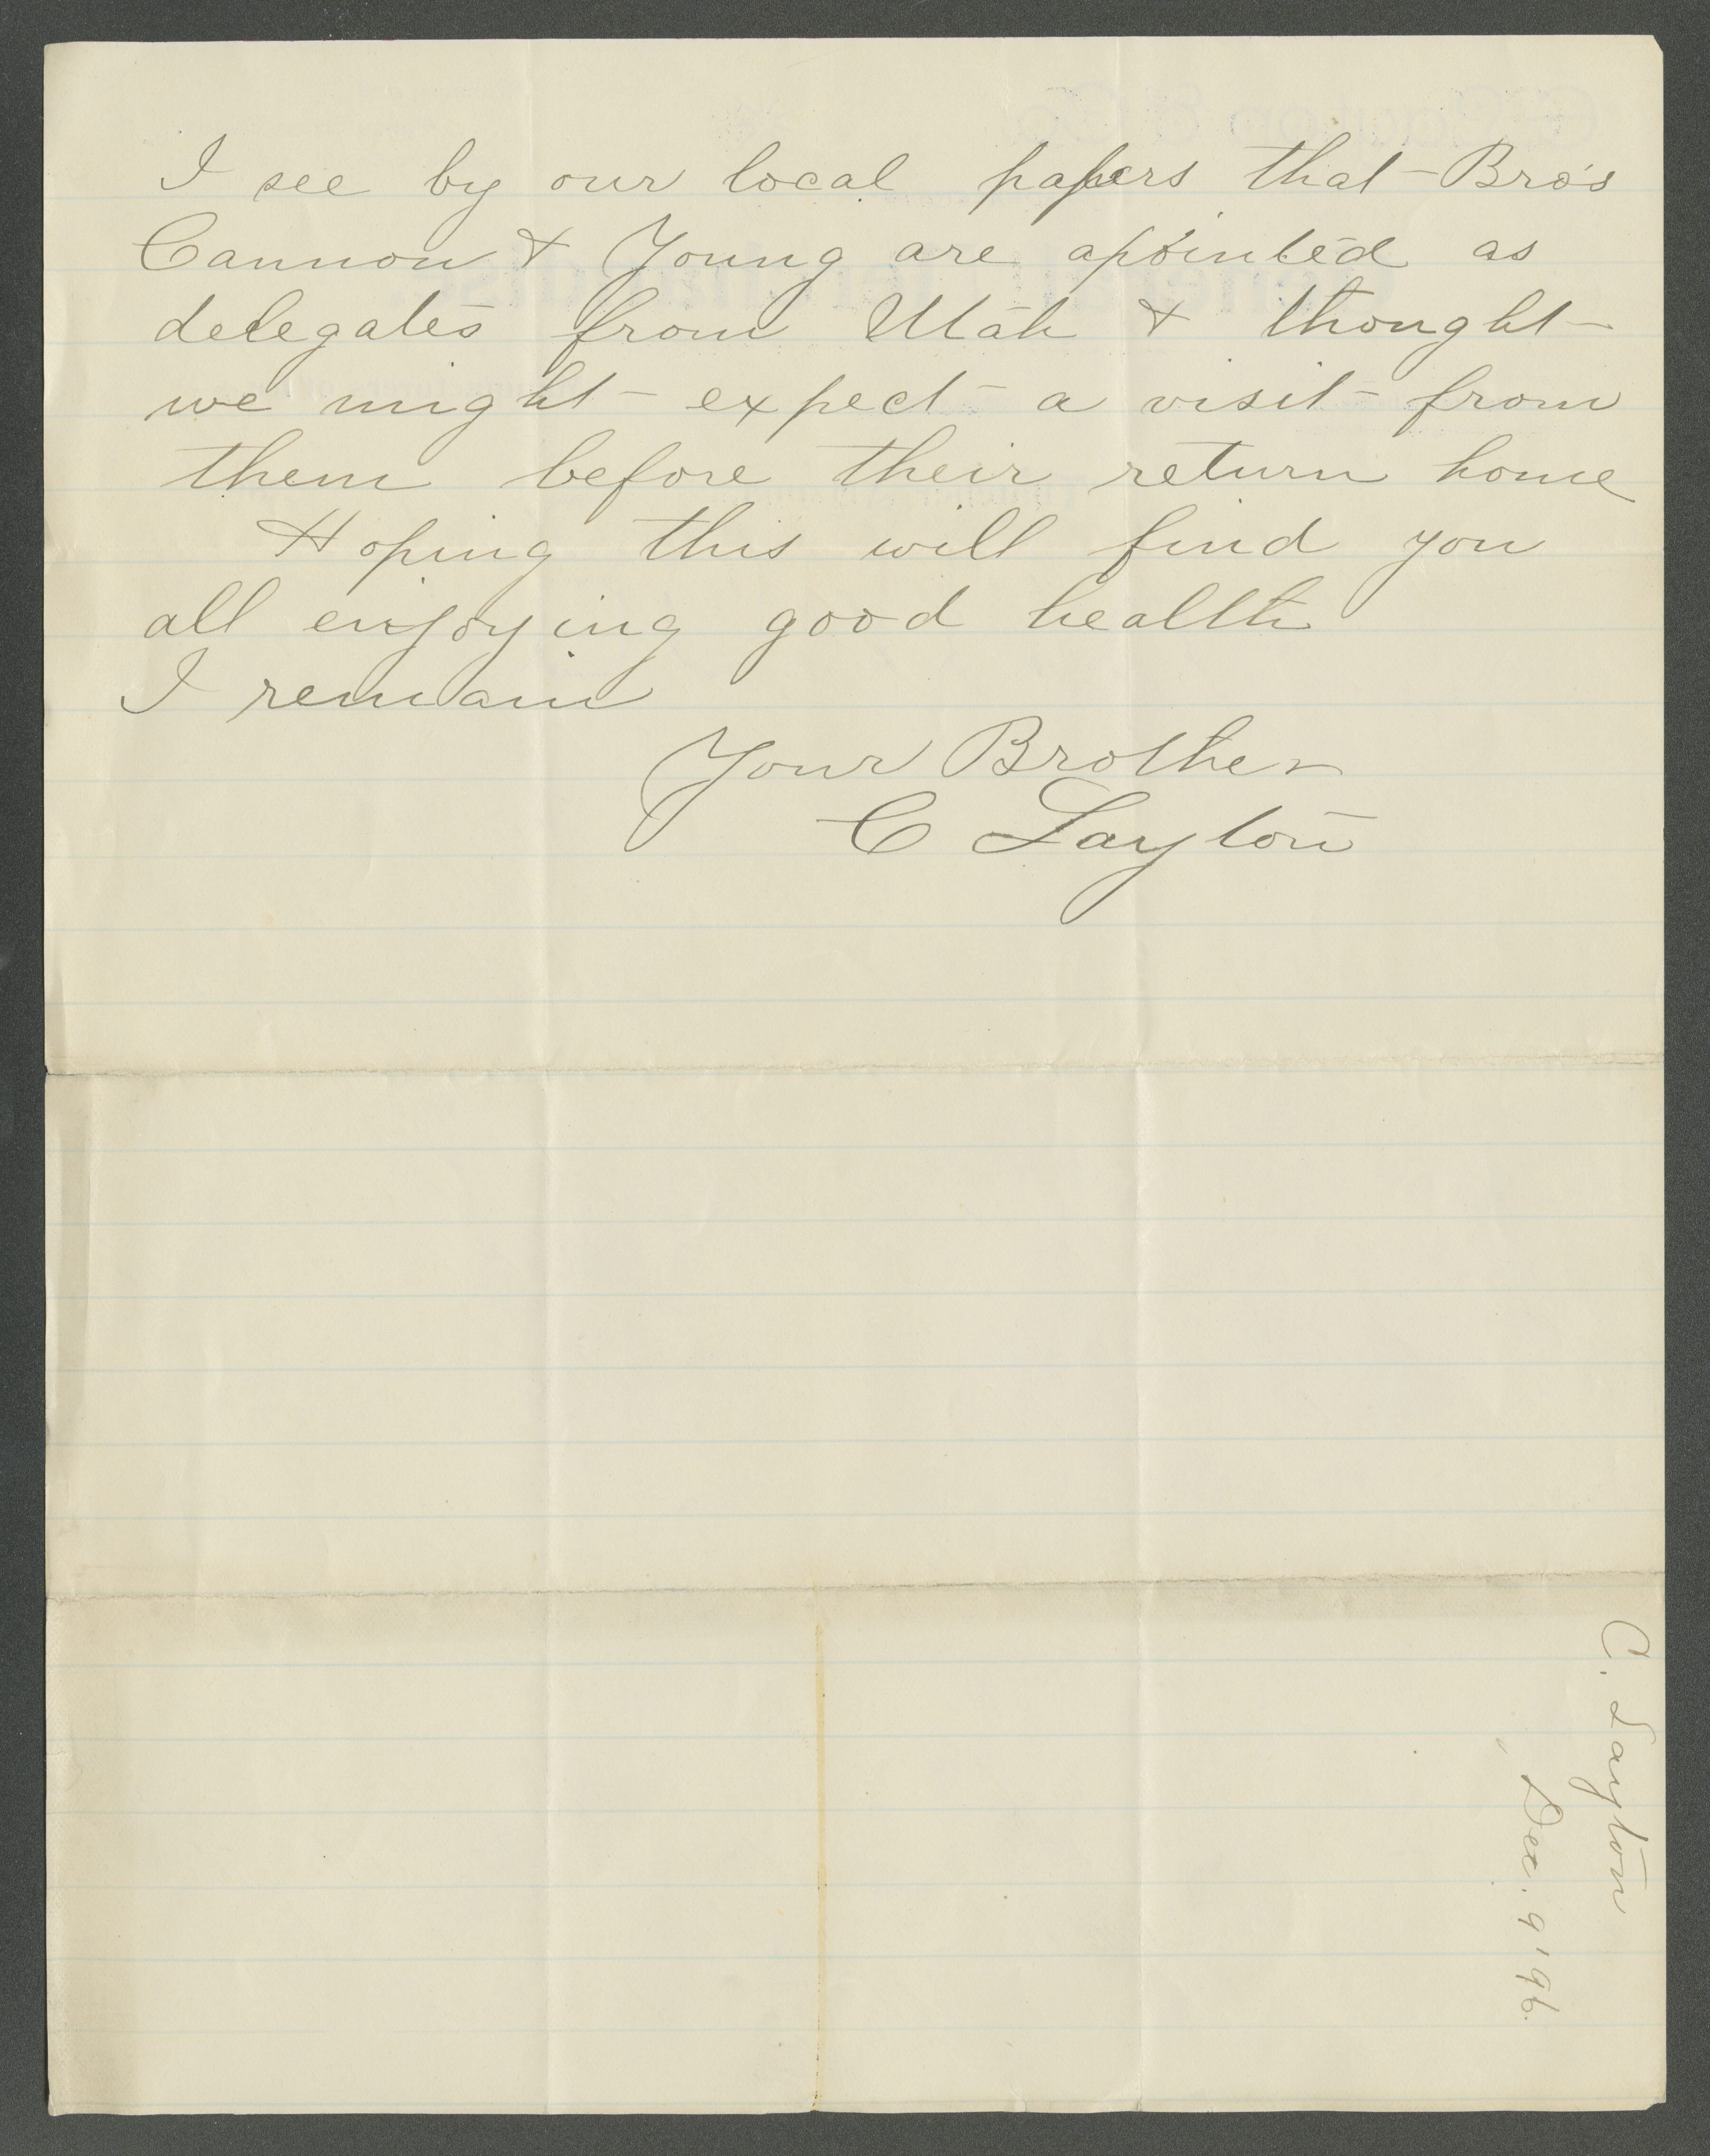 I see by our local papers that Bro's
Cannon & Young are apointed as
delegates from Utah & thought
we might expect a visit from
them before their return home
Hoping this will find you
all enjoying good health
I remain
Your Brother
C Layton
C. Layton
Dec. 9 '96.